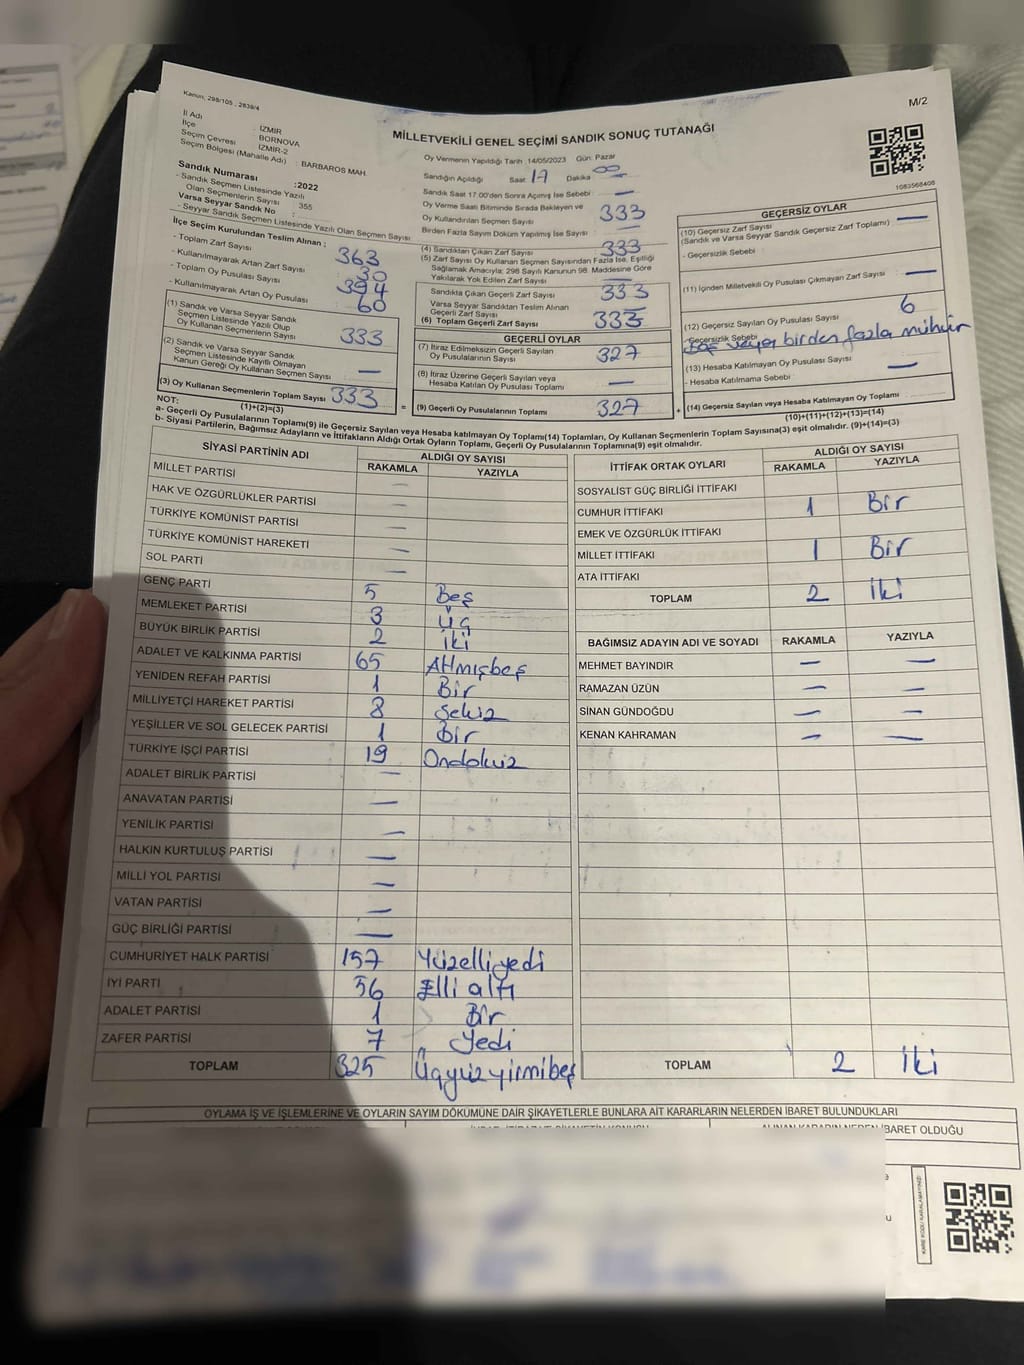 Kanun, 298/105 , 2839/4
M/2
MİLLETVEKİLİ GENEL SEÇİMİ SANDIK SONUÇ TUTANAĞI
İl Adı : İZMİR
İlçe : BORNOVA
Seçim Çevresi : İZMİR-2
Seçim Bölgesi (Mahalle Adı) : BARBAROS MAH.
Sandık Numarası : 2022
- Sandık Seçmen Listesinde Yazılı Olan Seçmenlerin Sayısı : 355
Varsa Seyyar Sandık No :
- Seyyar Sandık Seçmen Listesinde Yazılı Olan Seçmen Sayısı
Oy Vermenin Yapıldığı Tarih :14/05/2023 Gün: Pazar
Sandığın Açıldığı Saat 17 Dakika 00
Sandık Saat 17:00'den Sonra Açılmış İse Sebebi : —
Oy Verme Saati Bitiminde Sırada Bekleyen ve
Oy Kullandırılan Seçmen Sayısı 333
Birden Fazla Sayım Döküm Yapılmış İse Sayısı : —
1083568408
İlçe Seçim Kurulundan Teslim Alınan ;
- Toplam Zarf Sayısı : 363
- Kullanılmayarak Artan Zarf Sayısı : 30
- Toplam Oy Pusulası Sayısı : 394
- Kullanılmayarak Artan Oy Pusulası 60
(1) Sandık ve Varsa Seyyar Sandık
Seçmen Listesinde Yazılı Olup
Oy Kullanan Seçmenlerin Sayısı : 333
(2) Sandık ve Varsa Seyyar Sandık
Seçmen Listesinde Kayıtlı Olmayan
Kanun Gereği Oy Kullanan Seçmen Sayısı —
(3) Oy Kullanan Seçmenlerin Toplam Sayısı 333
(1)+(2)=(3)
(4) Sandıktan Çıkan Zarf Sayısı : 333
(5) Zarf Sayısı Oy Kullanan Seçmen Sayısından Fazla İse, Eşitliği
Sağlamak Amacıyla; 298 Sayılı Kanunun 98. Maddesine Göre
Yakılarak Yok Edilen Zarf Sayısı
Sandıkta Çıkan Geçerli Zarf Sayısı : 333
Varsa Seyyar Sandıktan Teslim Alınan
Geçerli Zarf Sayısı
(6) Toplam Geçerli Zarf Sayısı : 333
GEÇERLİ OYLAR
(7) İtiraz Edilmeksizin Geçerli Sayılan
Oy Pusulalarının Sayısı : 327
(8) İtiraz Üzerine Geçerli Sayılan veya
Hesaba Katılan Oy Pusulası Toplamı —
(9) Geçerli Oy Pusulalarının Toplamı 327
GEÇERSİZ OYLAR
(10) Geçersiz Zarf Sayısı : —
(Sandık ve Varsa Seyyar Sandık Geçersiz Zarf Toplamı)
- Geçersizlik Sebebi
(11) İçinden Milletvekili Oy Pusulası Çıkmayan Zarf Sayısı : —
(12) Geçersiz Sayılan Oy Pusulası Sayısı : 6
- Geçersizlik Sebebi veya birden fazla mühür
(13) Hesaba Katılmayan Oy Pusulası Sayısı : —
- Hesaba Katılmama Sebebi :
(14) Geçersiz Sayılan veya Hesaba Katılmayan Oy Toplamı
(10)+(11)+(12)+(13)=(14)
NOT:
a- Geçerli Oy Pusulalarının Toplamı(9) ile Geçersiz Sayılan veya Hesaba katılmayan Oy Toplamı(14) Toplamları, Oy Kullanan Seçmenlerin Toplam Sayısına(3) eşit olmalıdır. (9)+(14)=(3)
b- Siyasi Partilerin, Bağımsız Adayların ve İttifakların Aldığı Ortak Oyların Toplamı, Geçerli Oy Pusulalarının Toplamına(9) eşit olmalıdır.
SİYASİ PARTİNİN ADI ALDIĞI OY SAYISI
RAKAMLA YAZIYLA
MİLLET PARTİSİ —
HAK VE ÖZGÜRLÜKLER PARTİSİ —
TÜRKİYE KOMÜNİST PARTİSİ —
TÜRKİYE KOMÜNİST HAREKETİ —
SOL PARTİ —
GENÇ PARTİ 5 Beş
MEMLEKET PARTİSİ 3 Üç
BÜYÜK BİRLİK PARTİSİ 2 İki
ADALET VE KALKINMA PARTİSİ 65 Altmışbeş
YENİDEN REFAH PARTİSİ 1 Bir
MİLLİYETÇİ HAREKET PARTİSİ 8 Sekiz
YEŞİLLER VE SOL GELECEK PARTİSİ 1 Bir
TÜRKİYE İŞÇİ PARTİSİ 19 Ondokuz
ADALET BİRLİK PARTİSİ —
ANAVATAN PARTİSİ —
YENİLİK PARTİSİ —
HALKIN KURTULUŞ PARTİSİ —
MİLLİ YOL PARTİSİ —
VATAN PARTİSİ —
GÜÇ BİRLİĞİ PARTİSİ —
CUMHURİYET HALK PARTİSİ 157 Yüzelliyedi
İYİ PARTİ 56 Elli altı
ADALET PARTİSİ 1 Bir
ZAFER PARTİSİ 7 Yedi
TOPLAM 325 Üçyüzyirmibeş
İTTİFAK ORTAK OYLARI ALDIĞI OY SAYISI
RAKAMLA YAZIYLA
SOSYALİST GÜÇ BİRLİĞİ İTTİFAKI
CUMHUR İTTİFAKI 1 Bir
EMEK VE ÖZGÜRLÜK İTTİFAKI
MİLLET İTTİFAKI 1 Bir
ATA İTTİFAKI
TOPLAM 2 İki
BAĞIMSIZ ADAYIN ADI VE SOYADI RAKAMLA YAZIYLA
MEHMET BAYINDIR — —
RAMAZAN ÜZÜN — —
SİNAN GÜNDOĞDU — —
KENAN KAHRAMAN — —
TOPLAM 2 İki
OYLAMA İŞ VE İŞLEMLERİNE VE OYLARIN SAYIM DÖKÜMÜNE DAİR ŞİKAYETLERLE BUNLARA AİT KARARLARIN NELERDEN İBARET BULUNDUKLARI
İBARET OLDUĞU